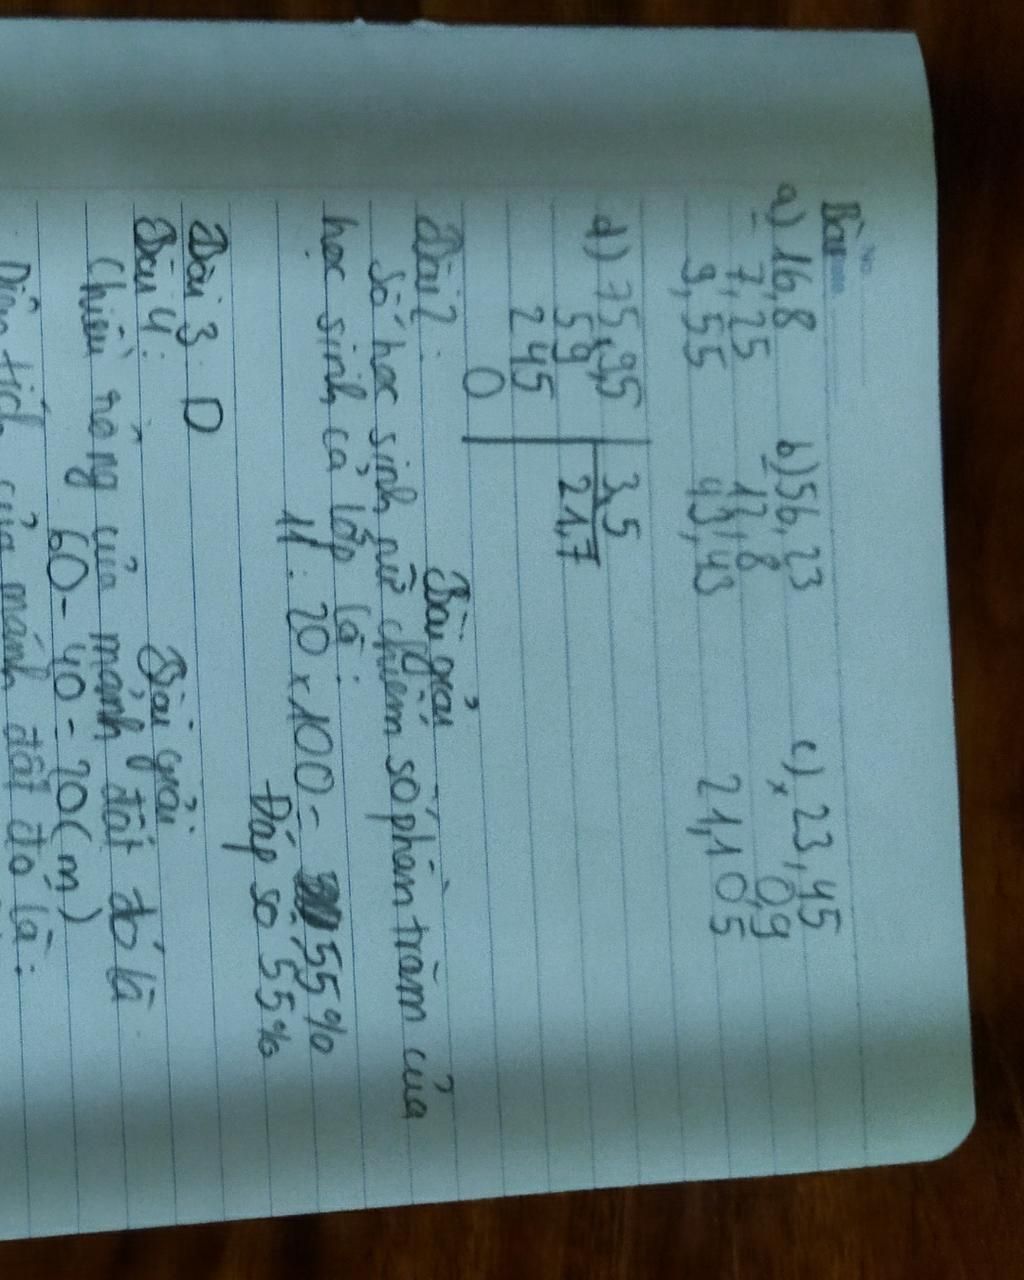 Bài
a) 16,8 b) 56,23 c) 23,45
- 7,25 - 12,8 x 0,9
9,55 43,43 21,105
d) 75,95 3,5
59 21,7
245
0
Bài 2: Bài giải
Số học sinh nữ chiếm số phần trăm của
học sinh cả lớp là:
11 : 20 x 100 = 55%
Đáp số 55%
Bài 3: D
Bài 4: Bài giải
Chiều rộng của mảnh đất đó là
60 - 40 = 20 (m)
Diện tích của mảnh đất đó là: